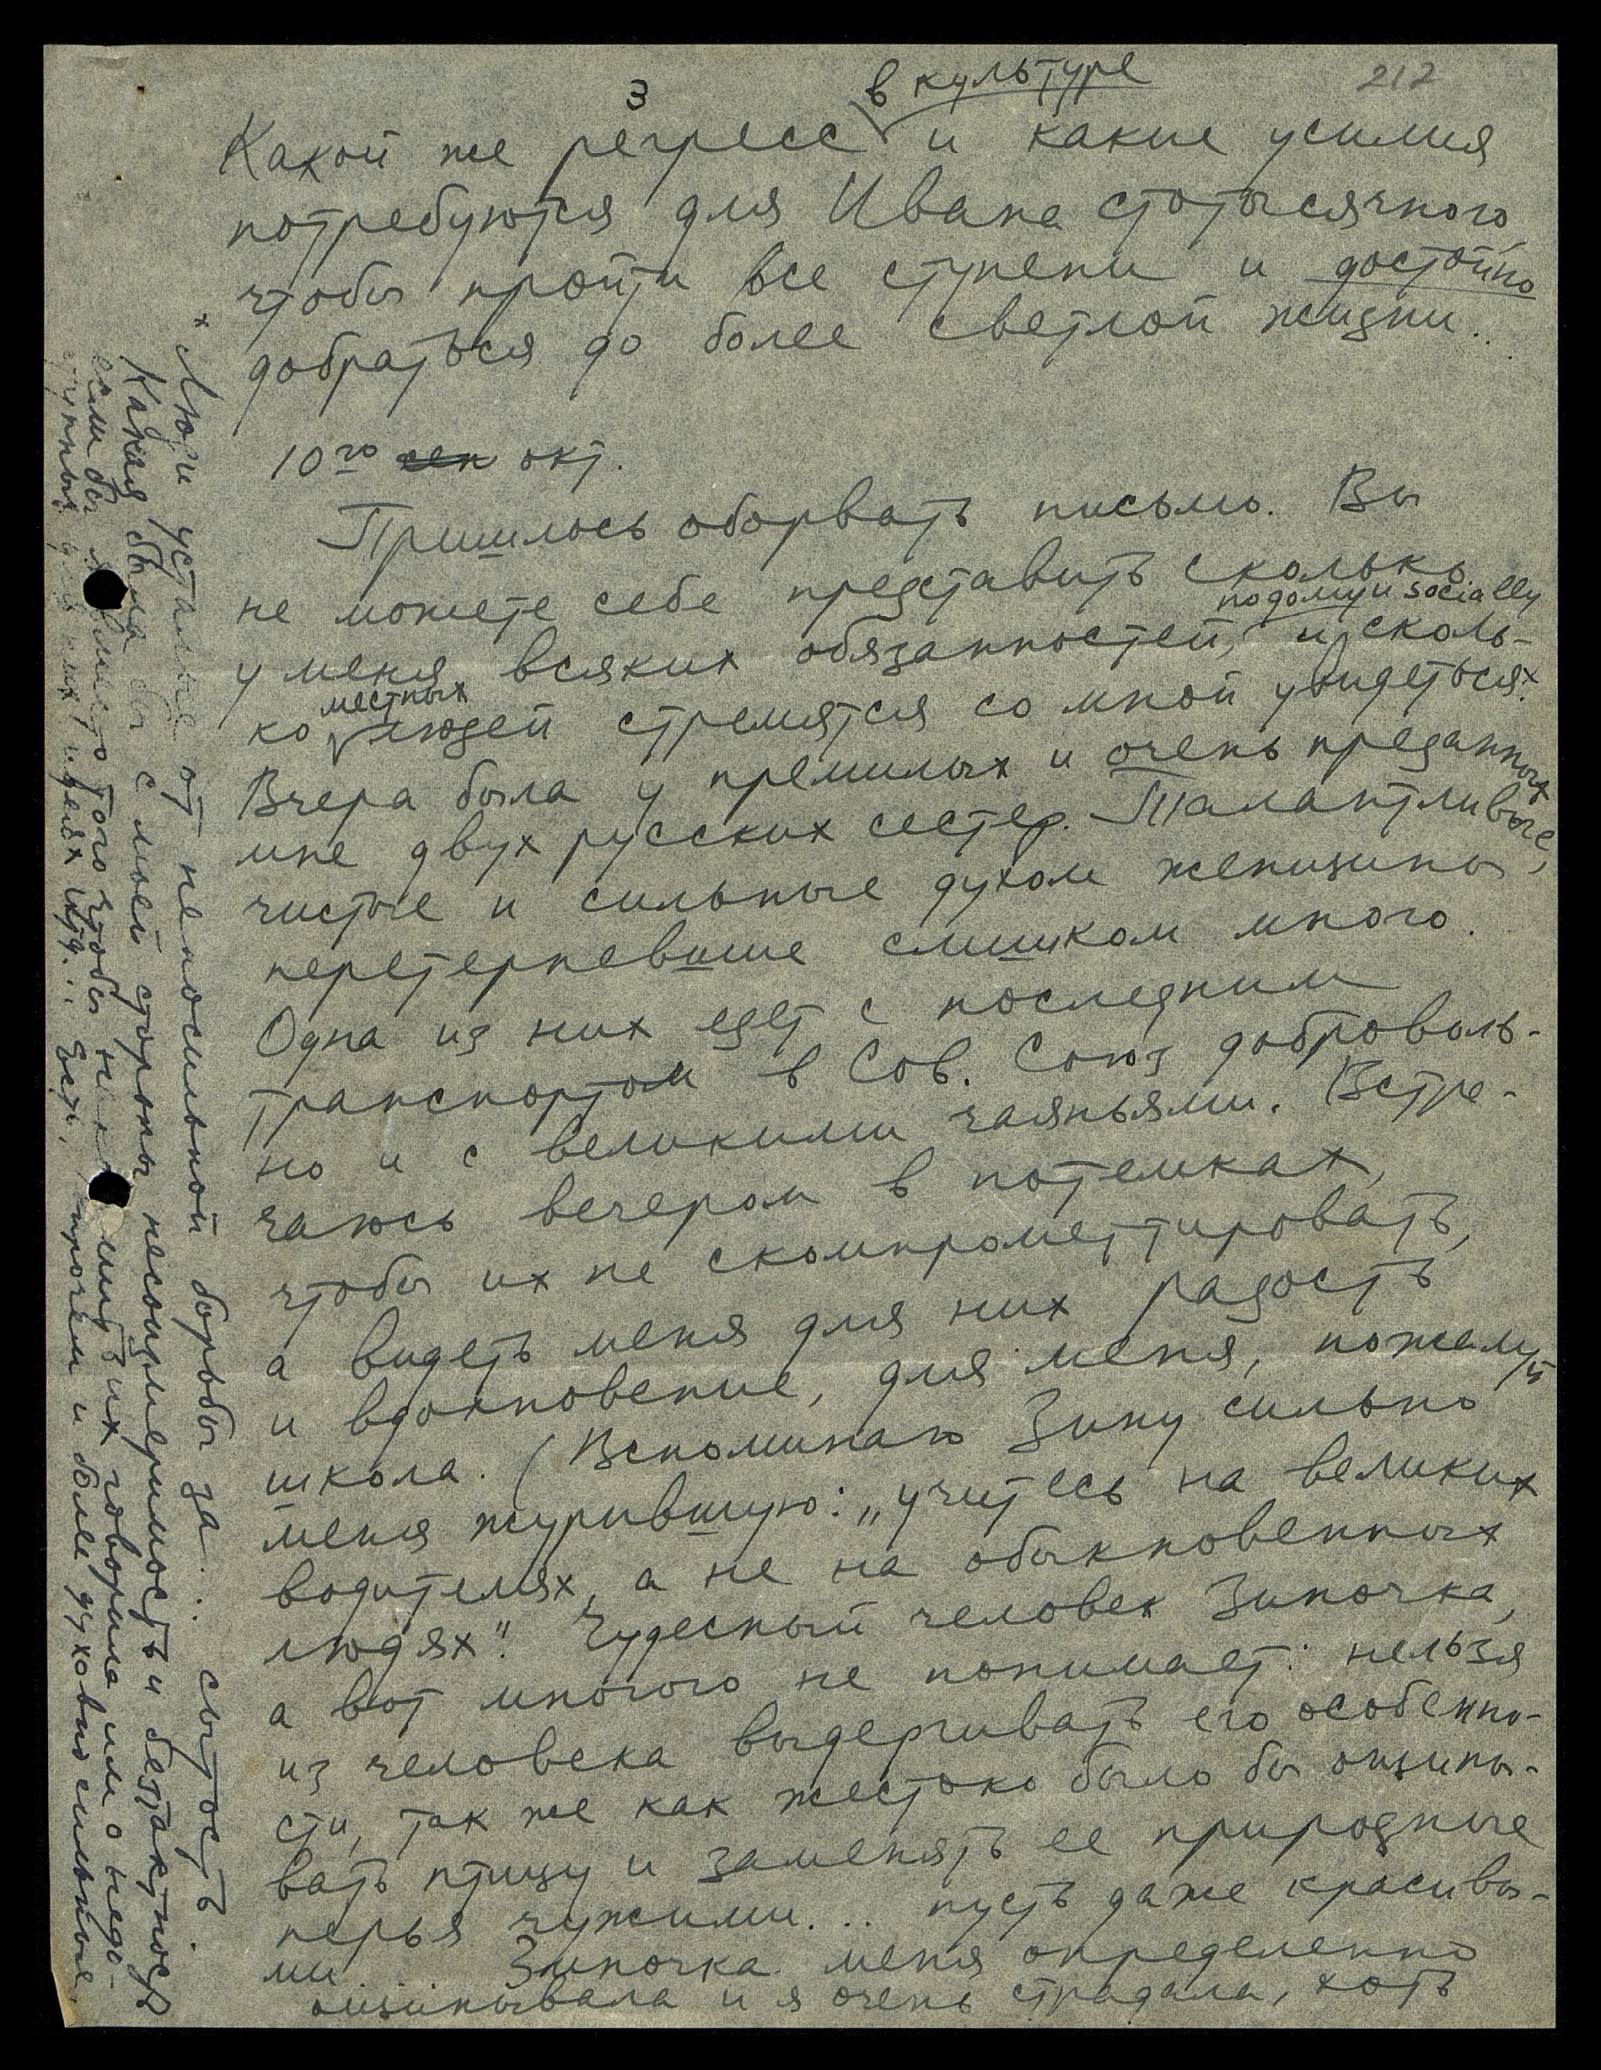 3
217
в культуре
Какой же регресс и какие усилия
потребуются для Ивана стотысячного,
чтобы пройти все ступени и достойно
добраться до более светлой жизни...
10го сен окт.
Пришлось оборвать письмо. Вы
не можете себе представить сколько
по дому и socially
у меня всяких обязанностей, и сколь-
местных
ко людей стремятся со мной увидеться.х
Вчера была у премилых и очень преданных
мне двух русских сестер. Талантливые,
чистые и сильные духом женщины,
перетерпевшие слишком много.
Одна из них едет с последним
транспортом в Сов. Союз доброволь-
но и с великими чаяньями. Встре-
чаюсь вечером в потемках,
чтобы их не скомпрометтировать,
а видеть меня для них радость
и вдохновение, для меня, пожалуй
школа. (Вспоминаю Зину сильно
меня журившую: „учитесь на великих
водителях, а не на обыкновенных
людях". Чудесный человек Зиночка,
а вот многого не понимает: нельзя
из человека выдергивать его особенно-
сти, так же как жестоко было бы ощипы-
вать птицу и заменять ее природные
перья чужими... пусть даже красивы-
ми.... Зиночка меня определенно
ощипывала и я очень страдала, хоть
х Люди усталые от непосильной борьбы за... сытость.
Какая была бы с моей стороны несоизмеримость и бестактность
если бы я вместо того чтобы их говорила им о недо-
ступных для них идеях итд... Есть, впрочем и более духовно сильные.